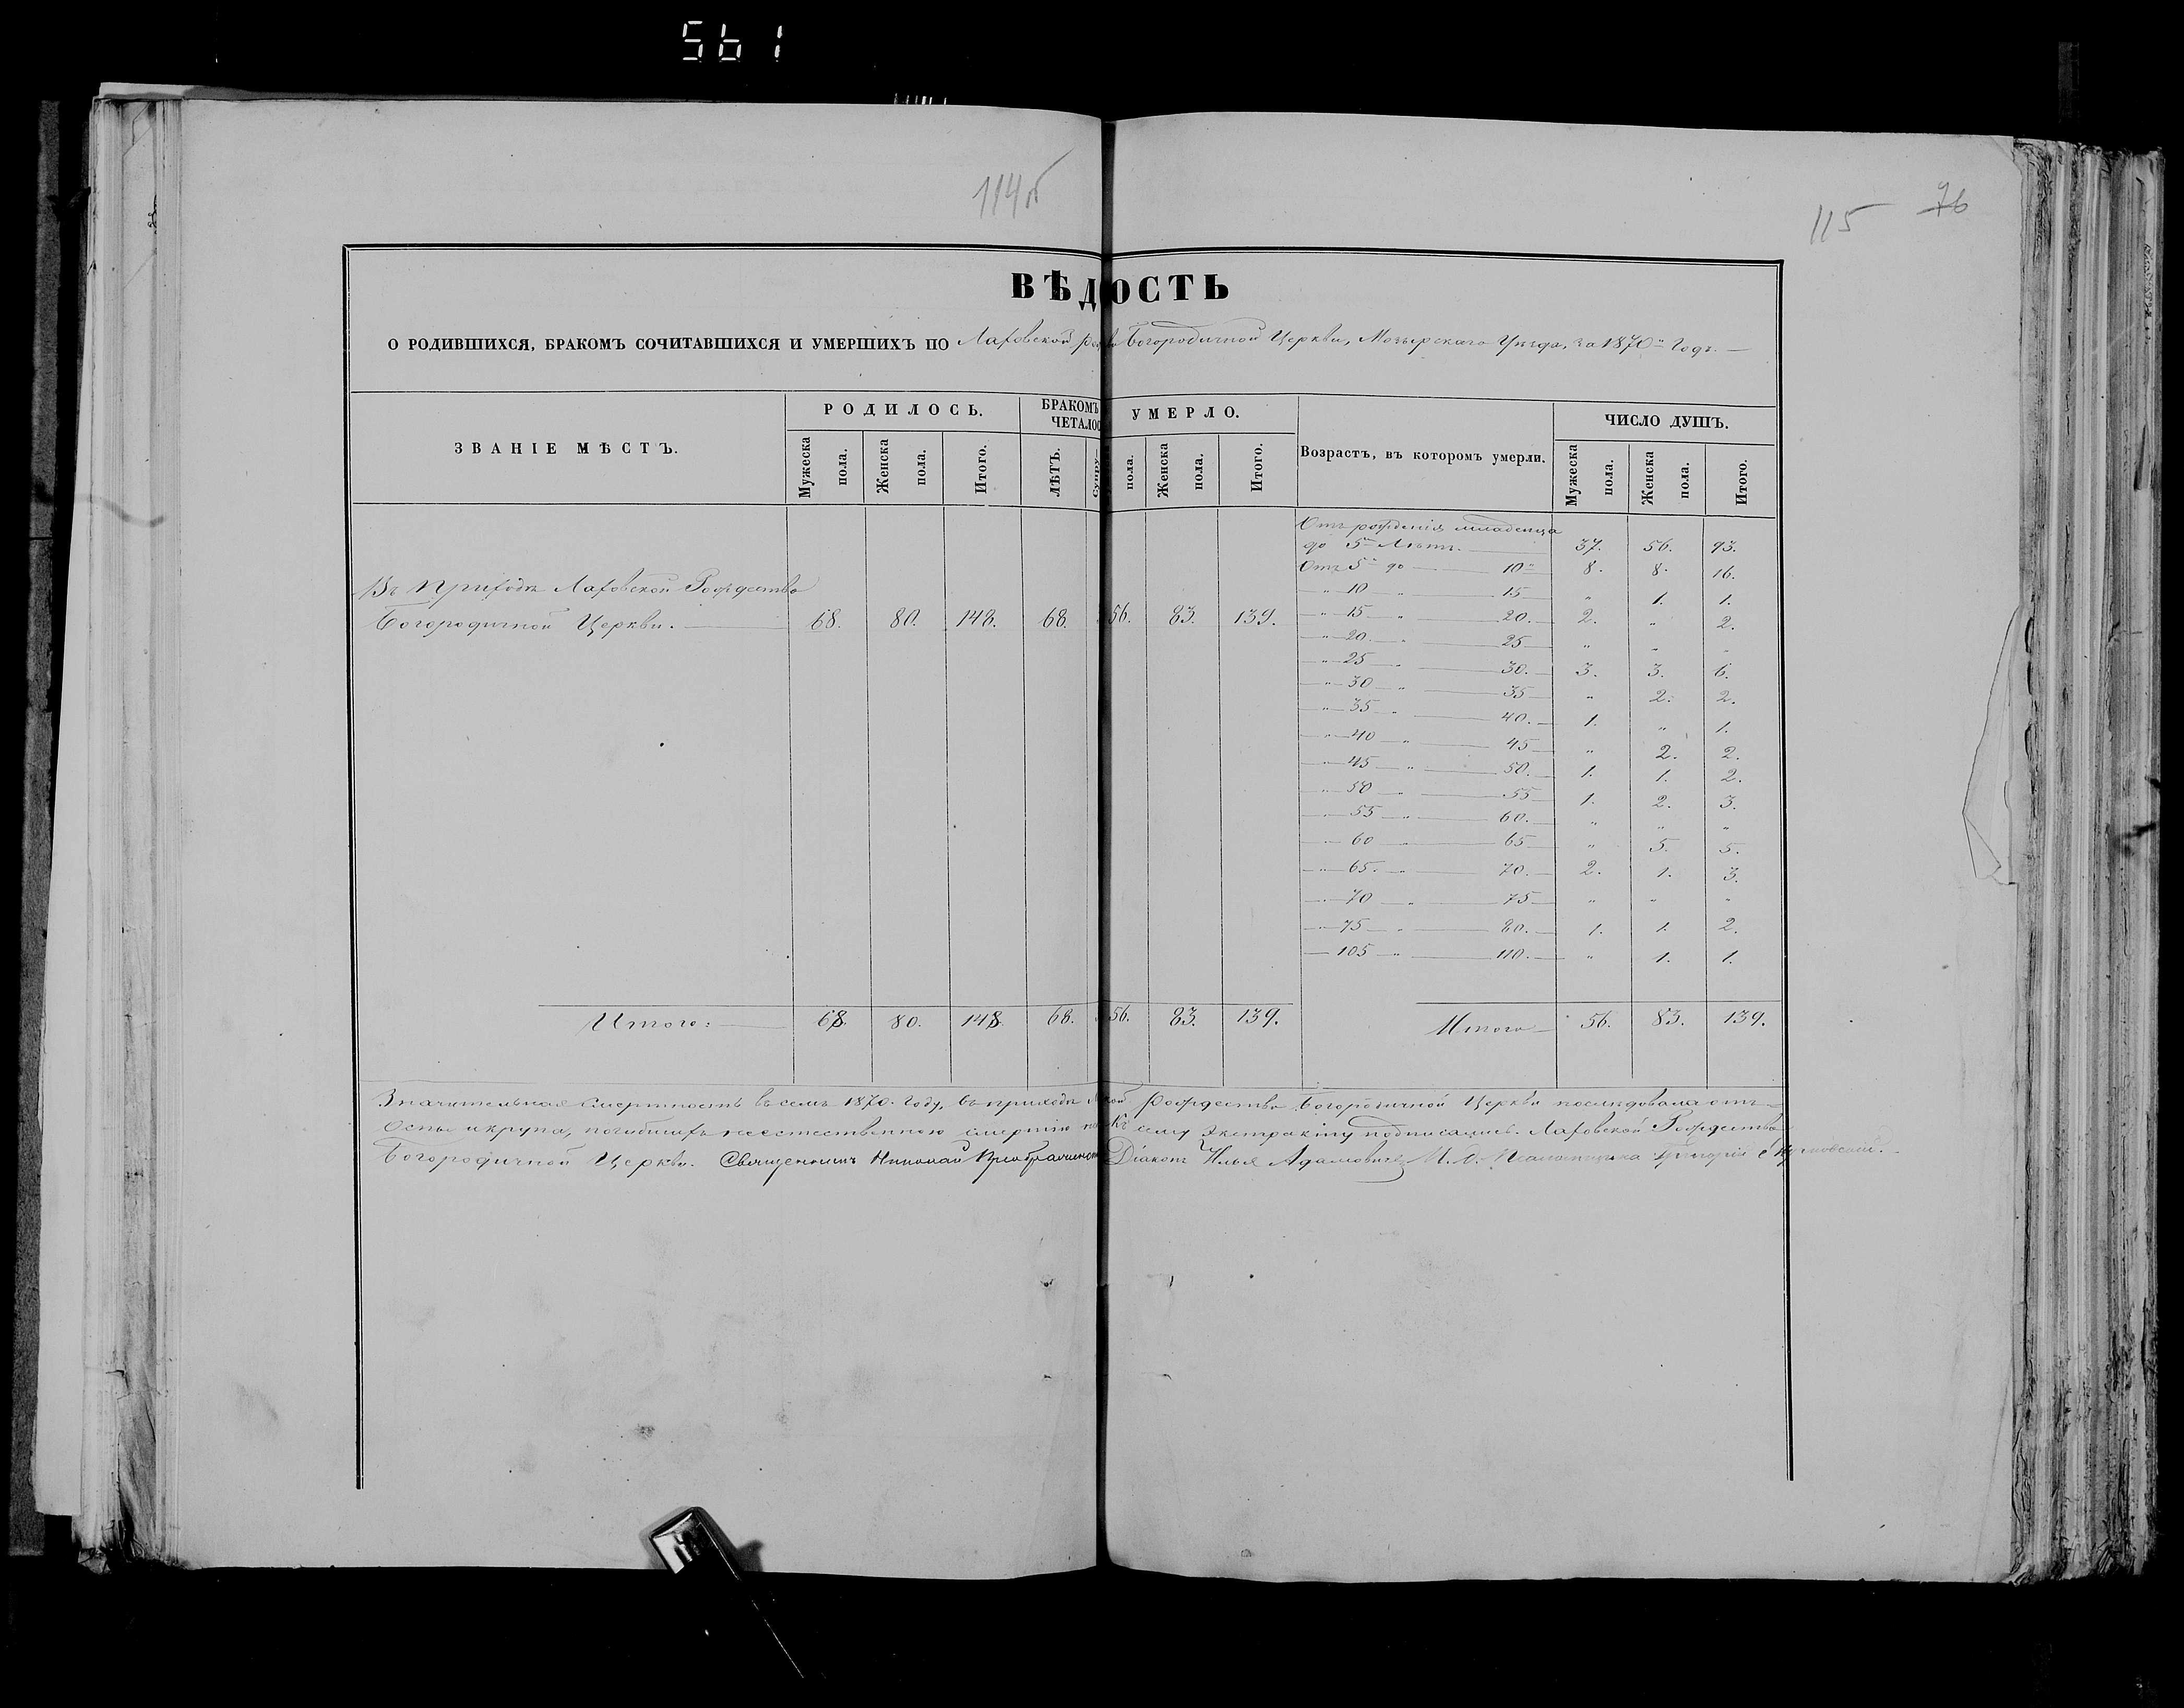 561
114б
115 76
ВѢДОСТЬ
О РОДИВШИХСЯ, БРАКОМЪ СОЧИТАВШИХСЯ И УМЕРШИХЪ ПО Лаховской Богородичной Церкви, Мозырскаго Уѣзда, за 1870й Годъ.
ЗВАНІЕ МѢСТЪ.
РОДИЛОСЬ.
Мужеска пола. Женска пола. Итого.
БРАКОМЪ
ЧЕТАЛОС
ЛѢТЪ. Супру-
УМЕРЛО.
пола. Женска пола. Итого.
Возрастъ, въ которомъ умерли.
ЧИСЛО ДУШЪ.
Мужеска пола. Женска пола. Итого.
Въ Приходѣ Лаховской Рождество
Богородичной Церкви. 68. 80. 148. 68. 56. 83. 139.
Отъ рожденія младенца
до 5 Лѣтъ. 37. 56. 93.
Отъ 5 до 10 8. 8. 16.
" 10 " 15 " 1. 1.
" 15 " 20. 2. " 2.
" 20. " 25 " " "
" 25 " 30. 3. 3. 6.
" 30 " 35 " 2. 2.
" 35 " 40. 1. " 1.
" 40 " 45 " 2. 2.
" 45 " 50. 1. 1. 2.
" 50 " 55 1. 2. 3.
" 55 " 60. " " "
" 60 " 65 " 5. 5.
" 65. " 70. 2. 1. 3.
" 70 " 75 " " "
" 75 " 80. 1. 1. 2.
105 " 110. " 1. 1.
Итого: 68. 80. 148. 68. 56. 83. 139. Итого 56. 83. 139.
Значительная Смертность въ семъ 1870. Году, въ приходѣ Рождество Богородичной Церкви послѣдовала отъ
Оспы и крупа, погибшихъ неестественною смертію Къ сему Экстракту подписались. Лаховской Рождество
Богородичной Церкви. Священникъ Николай Діаконъ Илья Адамовичъ И. Д. Псаломщика Григорій